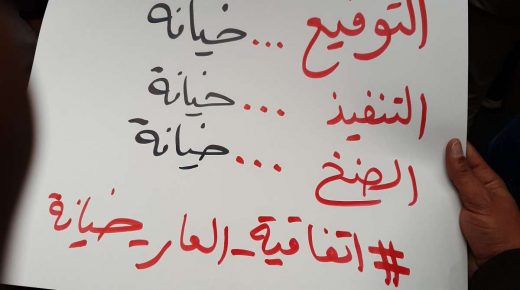 التوقيع ... خيانة
التنفيذ ... خيانة
الضخ ... خيانة
#اتفاقية_العار_خيانة